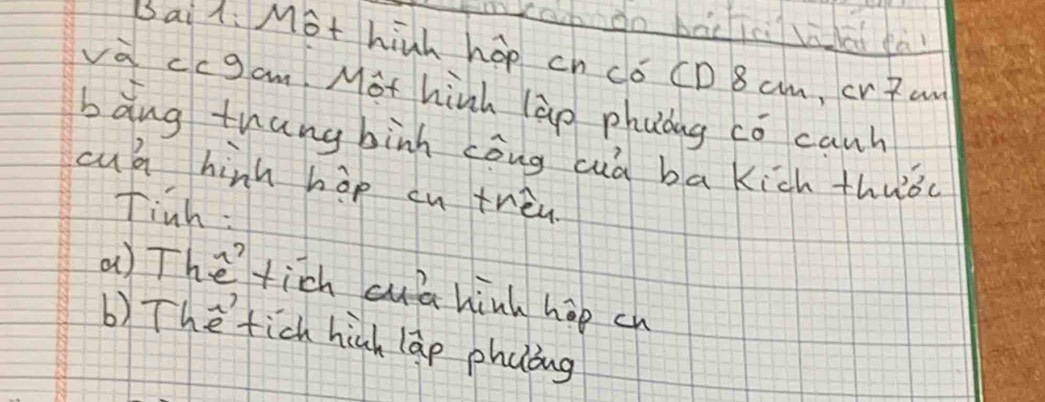 Bài 1: Một hình hộp cn có CD 8 cm, cr 7 cm
và cc 9 cm. Một hình lập phương có cạnh
bằng trung bình cộng của ba kích thước
của hình hộp cn trên.
Tính:
a) Thể tích của hình hộp cn
b) Thể tích hình lập phương